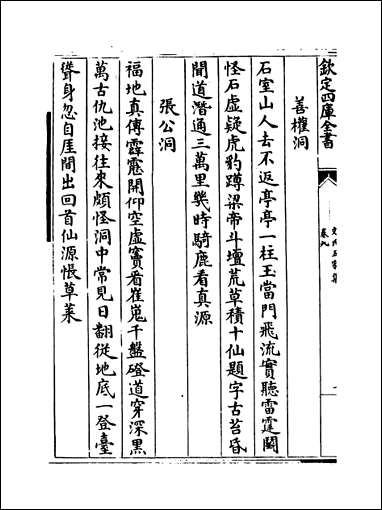 欽定四庫全書
卷八
善權洞
石室山人去不返亭亭一柱玉當門飛流實聽雷霆鬬
怪石虛疑虎豹蹲梁帝斗壇荒草積十仙題字古苔昏
聞道潛通三萬里幾時騎鹿看真源
張公洞
福地真傳霹靂開仰空虛竇看崔嵬千盤磴道穿深黑
萬古仇池接往來頗怪洞中常見日翻從地底一登臺
聳身忽自厓間出回首仙源悵草萊